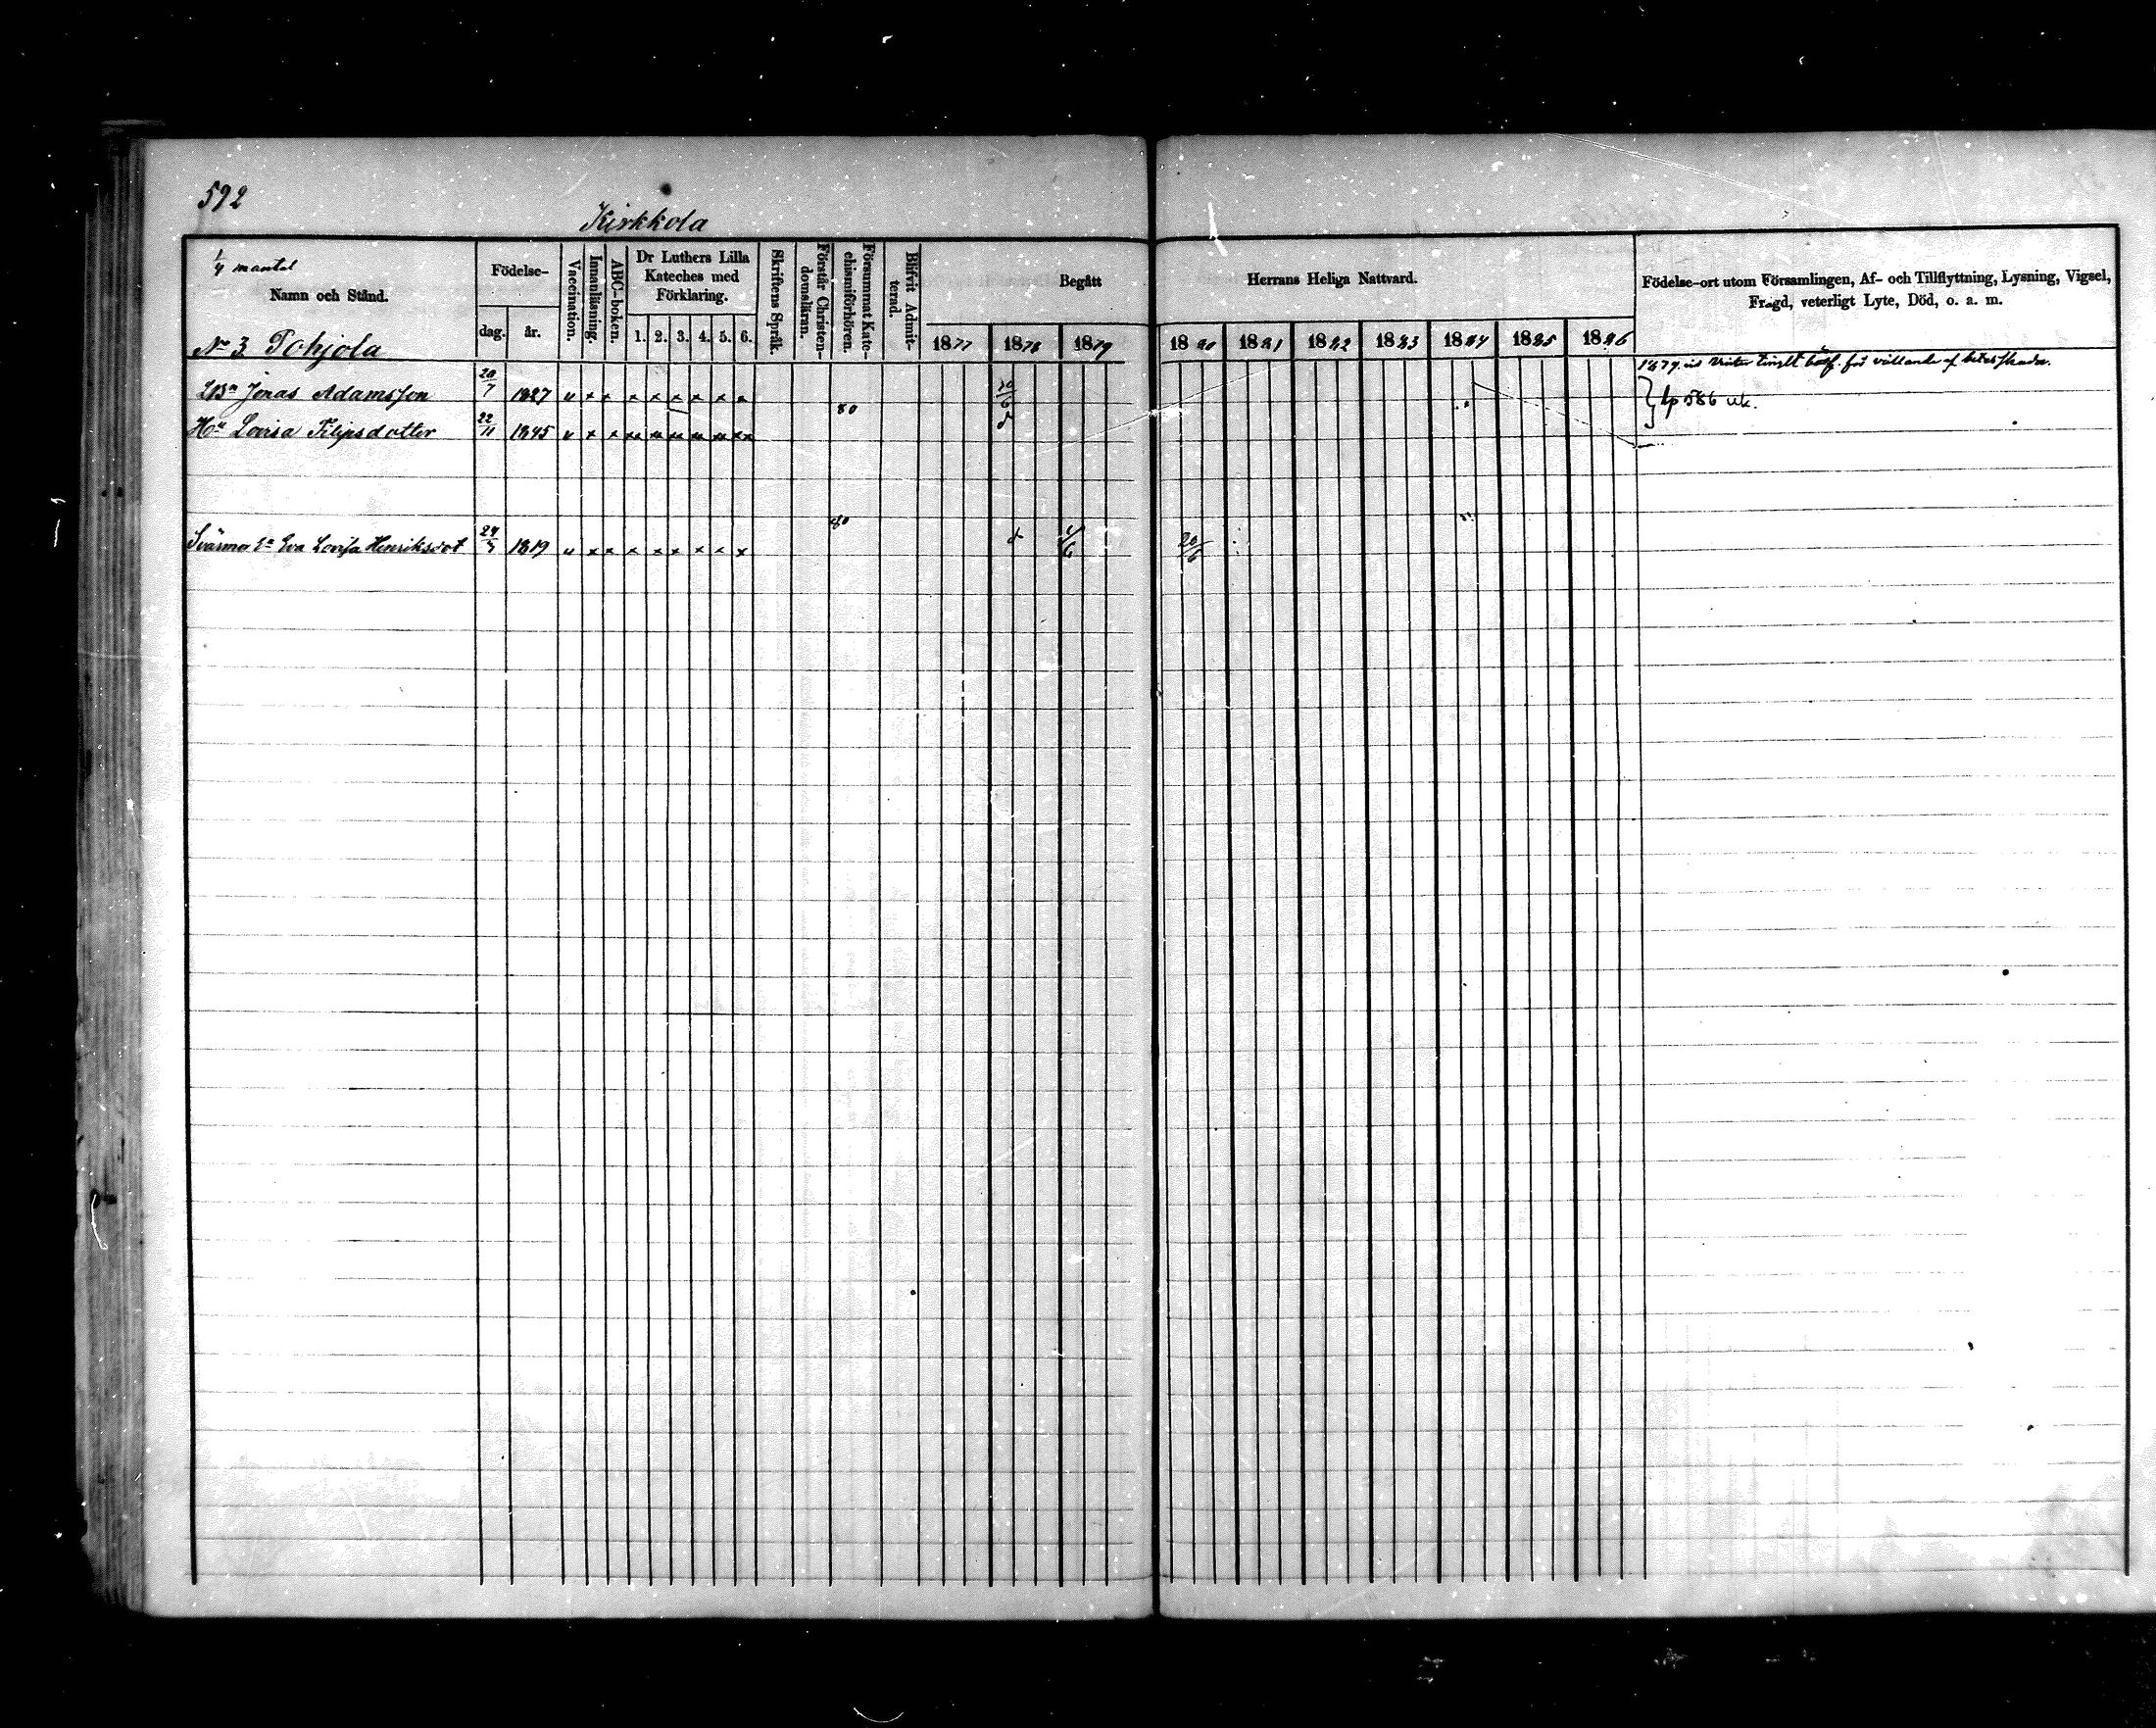 592
Kirkkola
1/4 mantal
Namn och Stånd.
Födelse-
dag. år.
Vaccination.
Innanläsning.
ABC-boken.
Dr Luthers Lilla
Kateches med
Förklaring.
1. 2. 3. 4. 5. 6.
Skriftens Språk.
Förstår Christen-
domsläran.
Försummat Kate-
chismiförhören.
Blifvit Admit-
terad.
Begått Herrans Heliga Nattvard.
1877 1878 1879 1880 1881 1882 1883 1884 1885 1886
Födelse-ort utom Församlingen, Af- och Tillflyttning, Lysning, Vigsel,
Fregd, veterligt Lyte, Död, o. a. m.
No 3 Pohjola
Jonas Adamsson 20/7 1827 v x x x x x x x x 80 20/6 1879 vid Vinter tinget för vållande af
Hu Lovisa Filipsdotter 22/11 1845 v x x x x x x x x p 586 uk.
Svärmor Ea Eva Lovisa Henriksdot 24/5 1819 v x x x x x x x x 80 1/6 20/6